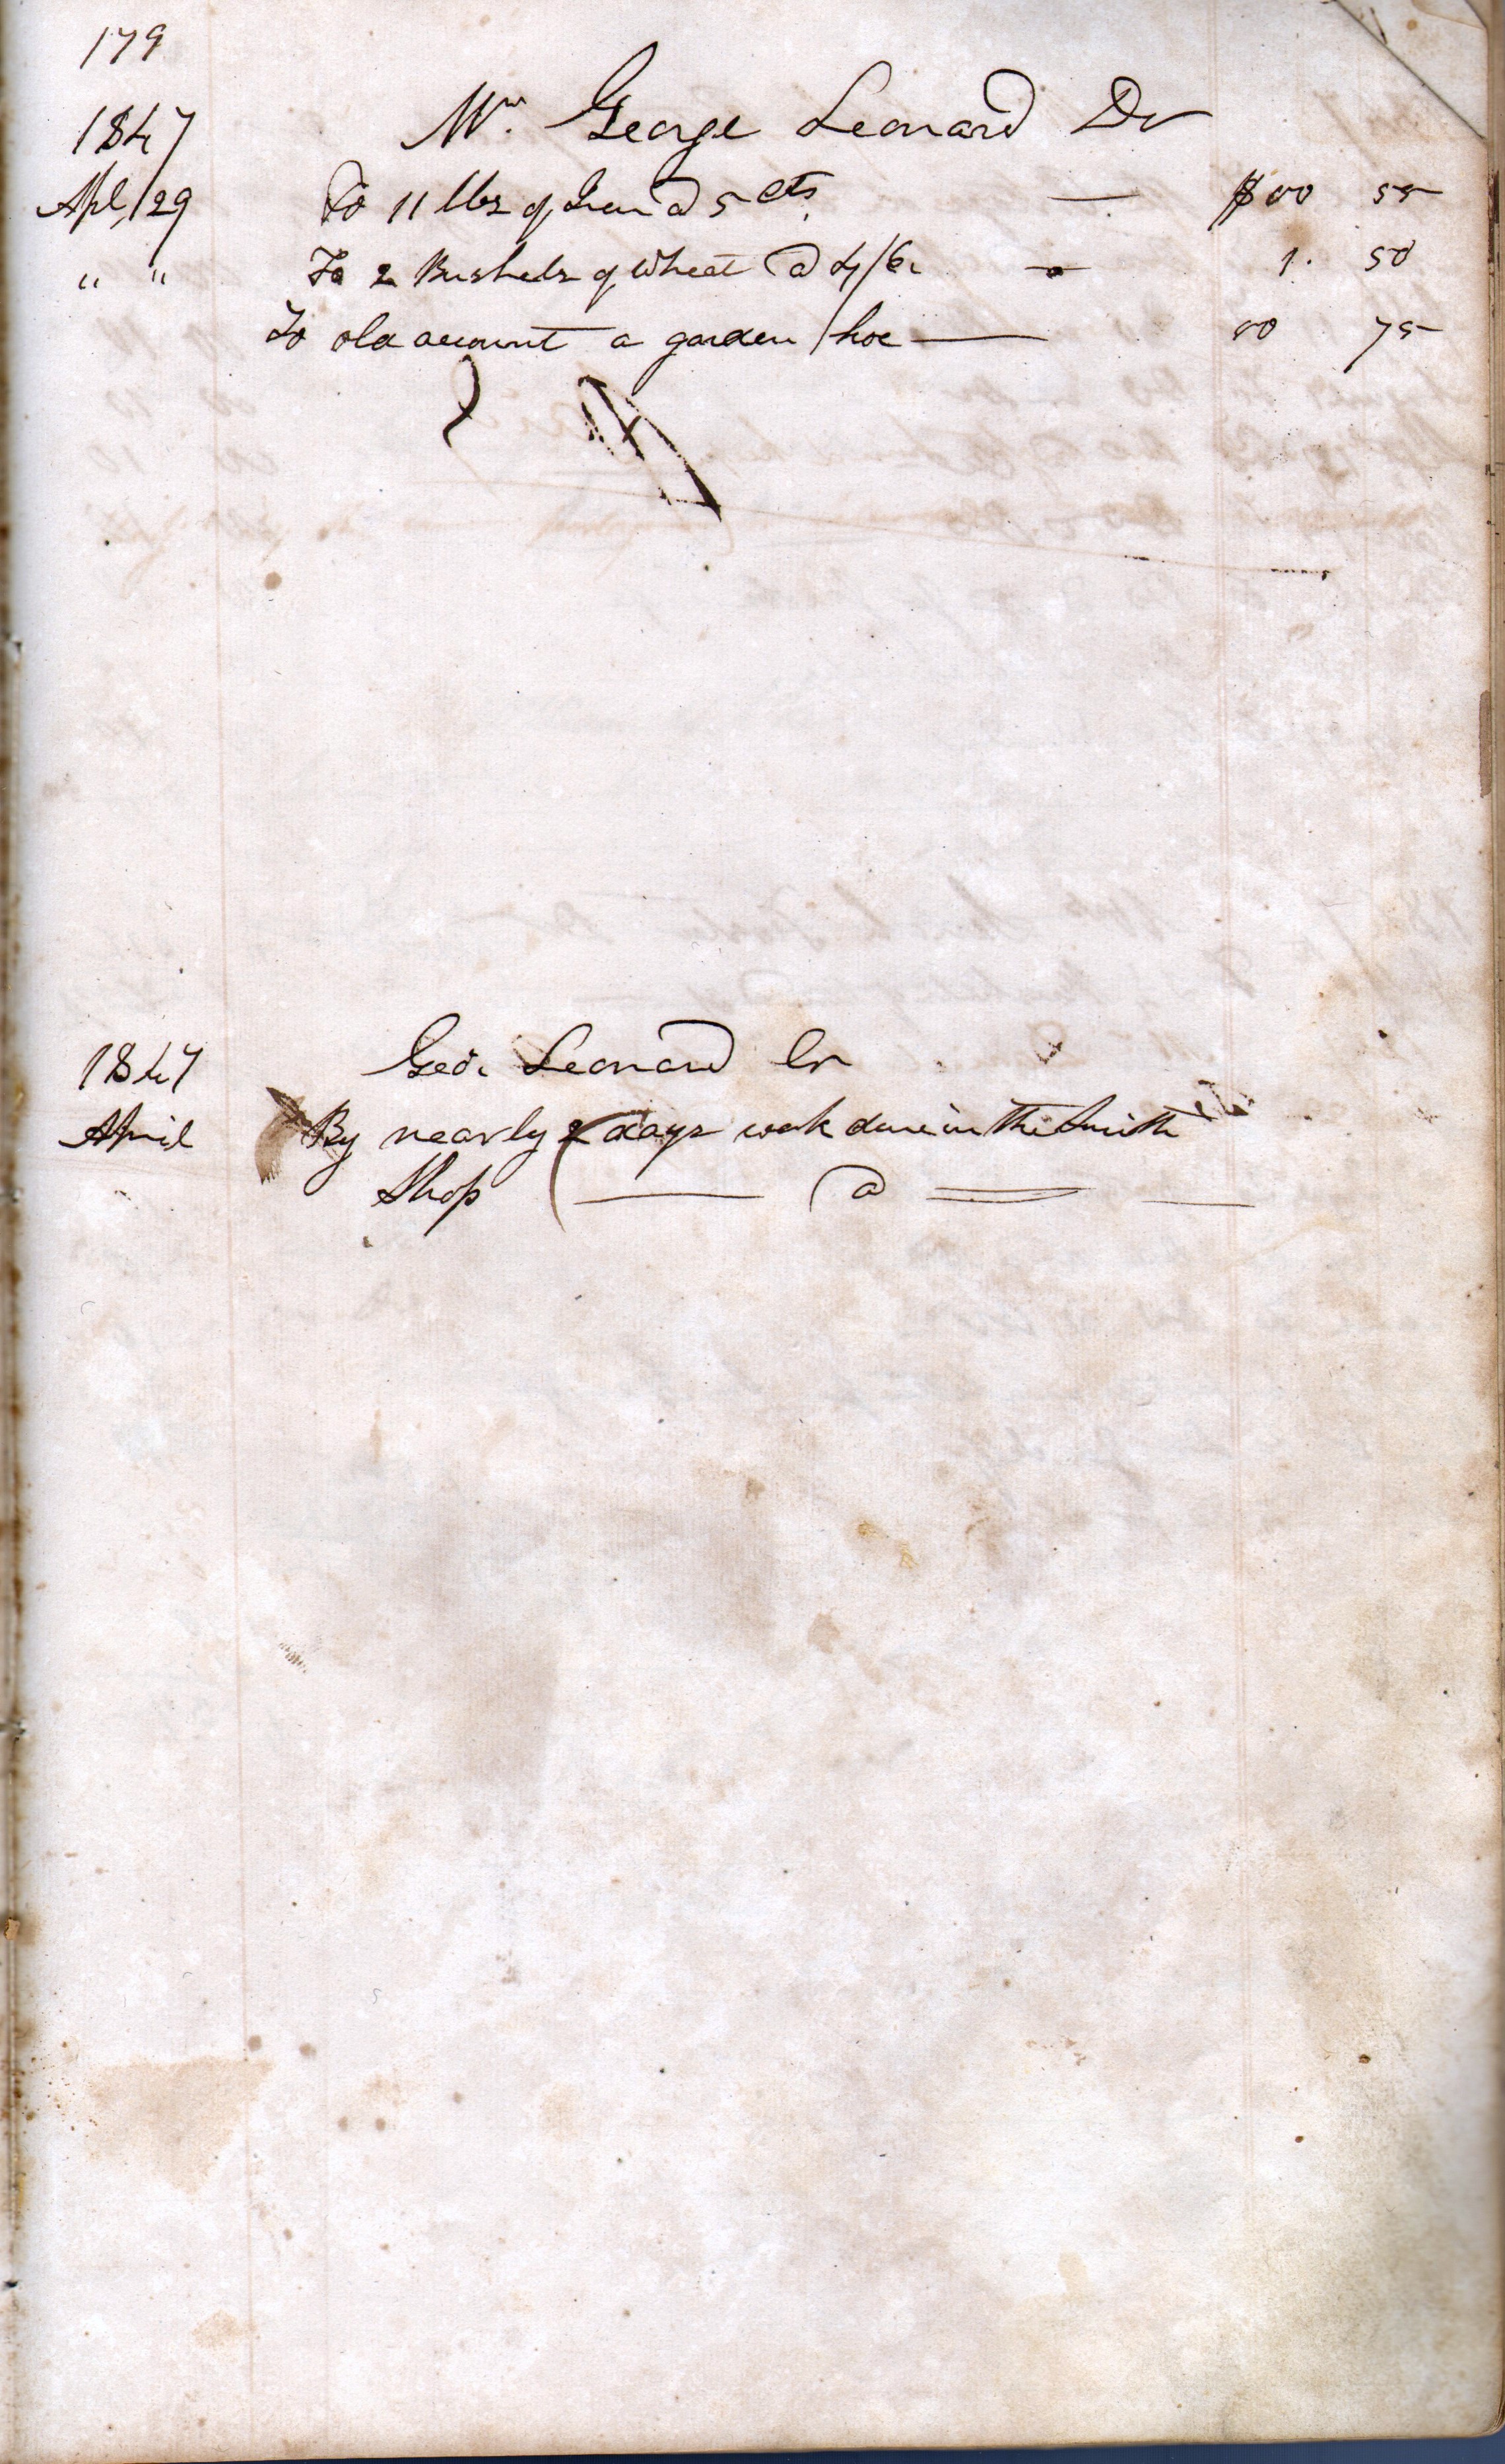 179
1847 Mr. George Leonard Dr
Apl 29 To 11 lbs of Iron @ 5 cts. — $00 55
" " To 2 Bushels of Wheat @ 4/6 — 1. 50
To old account a garden hoe — 00 75
1847 Geo. Leonard Cr
April By nearly 2 days work done in the Smith
Shop — @ —